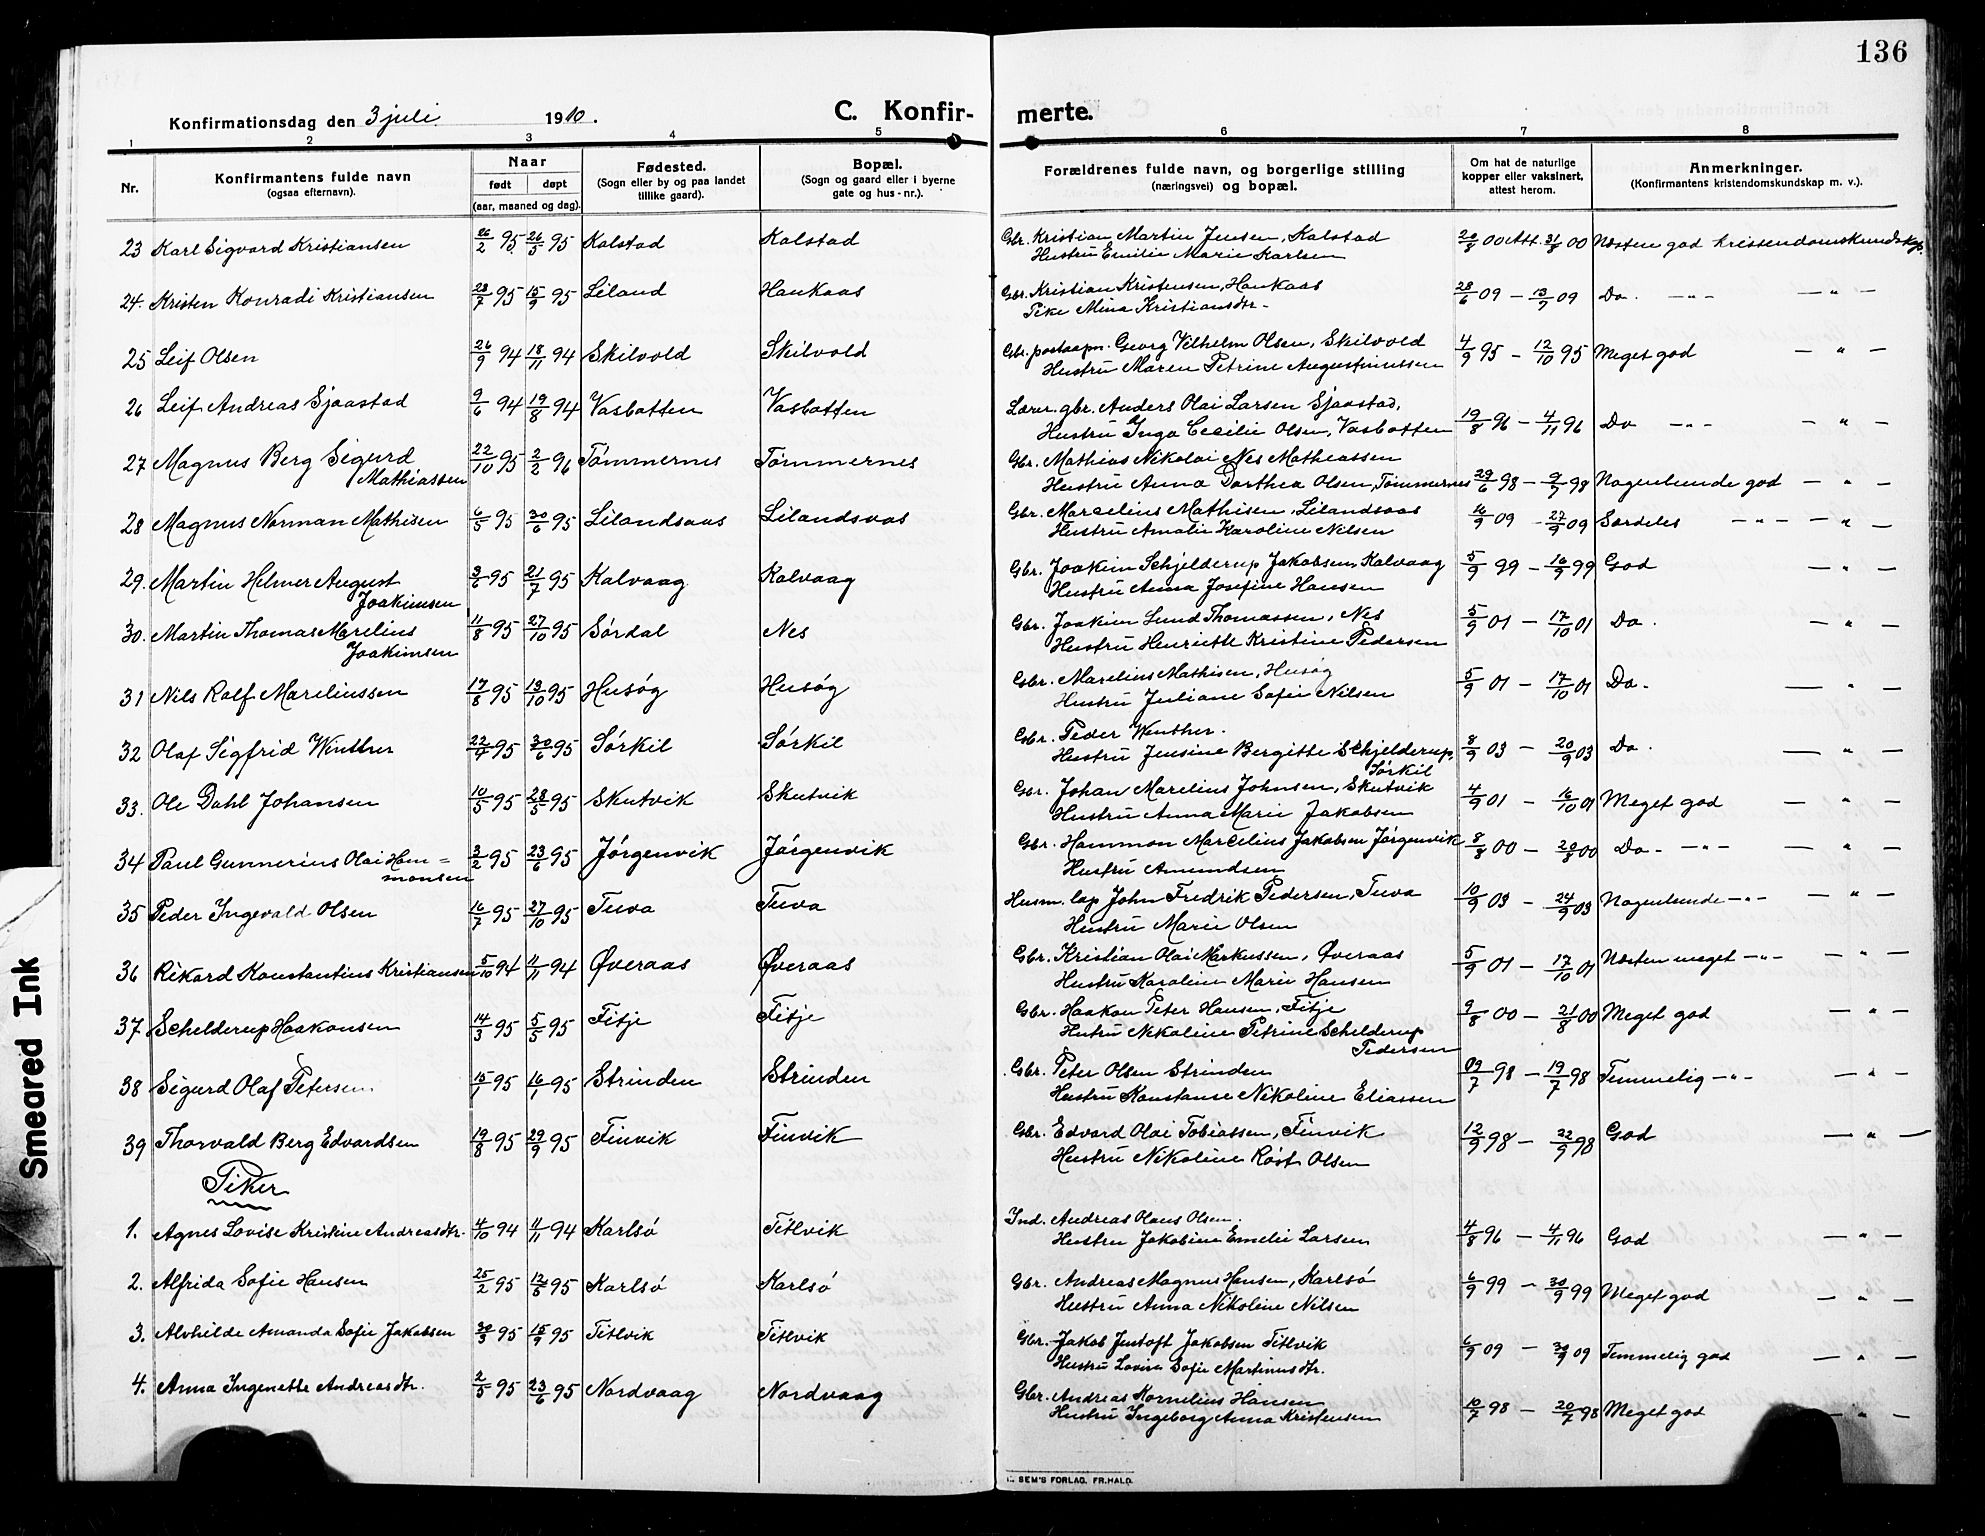 136
Konfirmationsdag den 3 juli 1910.
C. Konfir-
merte.
1 2 3 4 5 6 7 8
Nr.
Konfirmantens fulde navn
(ogsaa efternavn).
Naar
født døpt
(aar, maaned og dag).
Fødested.
(Sogn eller by og paa landet
tillike gaard).
Bopæl.
(Sogn og gaard eller i byerne
gate og hus-nr.).
Forældrenes fulde navn, og borgerlige stilling
(næringsvei) og bopæl.
Om hat de naturlige
kopper eller vaksinert,
attest herom.
Anmerkninger.
(Konfirmantens kristendomskundskap m. v.).
23 Karl Sigvard Kristiansen 26/2 95 26/5 95 Kalstad Kalstad Gbr. Kristian Martin Jensen, Kalstad 20/8 00 Att. 31/8 00 Næsten god kristendomskundskap.
Hustru Emilie Marie Karlsen
24. Kristen Konradi Kristiansen 23/7 95 15/9 95 Liland Haukaas Gbr. Kristian Kristensen, Haukaas 28/6 09 — 13/7 09 Do. —"— — " —
Pike Mina Kristiansdtr.
25 Leif Olsen 26/9 94 18/11 94 Skilvold Skilvold Gbr. postaapn. Georg Vilhelm Olsen, Skilvold 4/9 95 — 12/10 95 Meget god — " —
Hustru Maren Petrine Augustinussen
26 Leif Andreas Sjaastad 9/6 94 19/8 94 Vasbotten Vasbotten Lærer. gbr. Anders Olai Larsen Sjaastad,
Hustru Inga Cecilie Olsen, Vasbotten 19/8 96 — 4/11 96 Do —"— — " —
27 Magnus Berg Sigurd 22/10 95 2/2 96 Tømmernes Tømmernes Gbr. Mathias Nikolai Nes Mathiassen
Mathiassen Hustru Anna Dorthea Olsen, Tømmernes 29/6 98 — 9/7 98 Nogenlunde god — " —
28 Magnus Norman Mathisen 6/5 95 30/6 95 Lilandsaas Lilandsaas Gbr. Marcelius Mathisen, Lilandsaas 16/9 09 — 27/9 09 Særdeles —"— — " —
Hustru Amalie Karoline Nilsen
29. Martin Helmer August 3/6 95 21/7 95 Kalvaag Kalvaag Gbr. Joakim Schjelderup Jakobsen, Kalvaag 5/9 99 — 16/9 99 God — " —
Joakimsen Hustru Anna Josefine Hansen
30. Martin Thomas Marelius 11/8 95 27/10 95 Sørdal Nes Gbr. Joakim Lund Thomassen, Nes 5/9 01 — 17/10 01 Do. — " —
Joakimsen Hustru Henriette Kristine Pedersen
31 Nils Rolf Mareliussen 17/8 95 13/10 95 Husøg Husøg Gbr. Marelius Mathisen, Husøg 5/9 01 — 17/10 01 Do. — " —
Hustru Juliane Sofie Nilsen
32 Olaf Sigfrid Winther 22/4 95 30/6 95 Sørkil Sørkil Gbr. Peder Winther.
Hustru Jensine Bergitte Schjelderup, 8/9 03 — 20/9 03 Do. — " —
Sørkil
33. Ole Dahl Johansen 10/5 95 28/5 95 Skutvik Skutvik Gbr. Johan Marelius Johnsen, Skutvik 4/9 01 — 16/10 01 Meget god — " —
Hustru Anna Marie Jakobsen
34 Paul Gunnerius Olai Ham= 3/2 95 23/6 95 Jørgenvik Jørgenvik Gbr. Hammon Marcelius Jakobsen Jørgenvik 8/8 00 — 20/8 00 Do. —"— — " —
monsen Hustru Amundsen
35 Peder Ingevald Olsen 16/7 95 27/10 95 Tuva Tuva Husm. lap John Fredrik Pedersen, Tuva 10/9 03 — 24/9 03 Nogenlunde —"— — " —
Hustru Marie Olsen
36 Rikard Konstantius Kristiansen 5/10 94 11/11 94 Øveraas Øveraas Gbr. Kristian Olai Markussen, Øveraas 5/9 01 — 17/10 01 Næsten meget —"— — " —
Hustru Karoline Marie Hansen
37 Schelderup Haakonsen 14/3 95 5/5 95 Fitje Fitje Gbr. Haakon Peter Hansen, Fitje 9/8 00 — 21/8 00 Meget god — " —
Hutru Nikoline Petrine Schelderup
Pedersen
38 Sigurd Olaf Petersen 15/1 95 16/1 95 Strinden Strinden Gbr. Peter Olsen Strinden 09/7 98 — 19/7 98 Temmelig —"— — " —
Hustru Konstanse Nikoline Eliassen
39 Thorvald Berg Edvardsen 19/8 95 29/9 95 Finvik Finvik Gbr. Edvard Olai Tobiassen, Finvik 12/9 98 — 22/9 98 God — " —
Hustru Nikoline Røst Olsen
Piker
1. Agnes Lovise Kristine Andreasdtr. 4/10 94 11/11 94 Karlsø Titlvik Ind. Andreas Olaus Olsen.
Hustru Jakobine Emelie Larsen 4/8 96 — 4/11 96 God — " —
2. Alfrida Sofie Hansen 25/2 95 12/5 95 Karlsø Karlsø Gbr. Andreas Magnus Hansen, Karlsø 6/9 99 — 30/9 99 Meget god — " —
Hustru Anna Nikoline Nilsen
3. Alvhilde Amanda Sofie Jakobsen 30/3 95 15/9 95 Titlvik Titlvik Gbr. Jakob Justoft Jakobsen Titlvik 6/9 09 — 30/9 09 Temmelig god — " —
Hustru Lovise Sofie Martinusdtr.
4. Anna Ingenette Andreasdtr. 2/5 95 23/6 95 Nordvaag Nordvaag Gbr. Andreas Kornelius Hansen
Hustru Ingeborg Anna Kristensen 10/7 98 — 20/7 98 Meget god — " —
SEM'S FORLAG, FR.HALD.
Smeared Ink